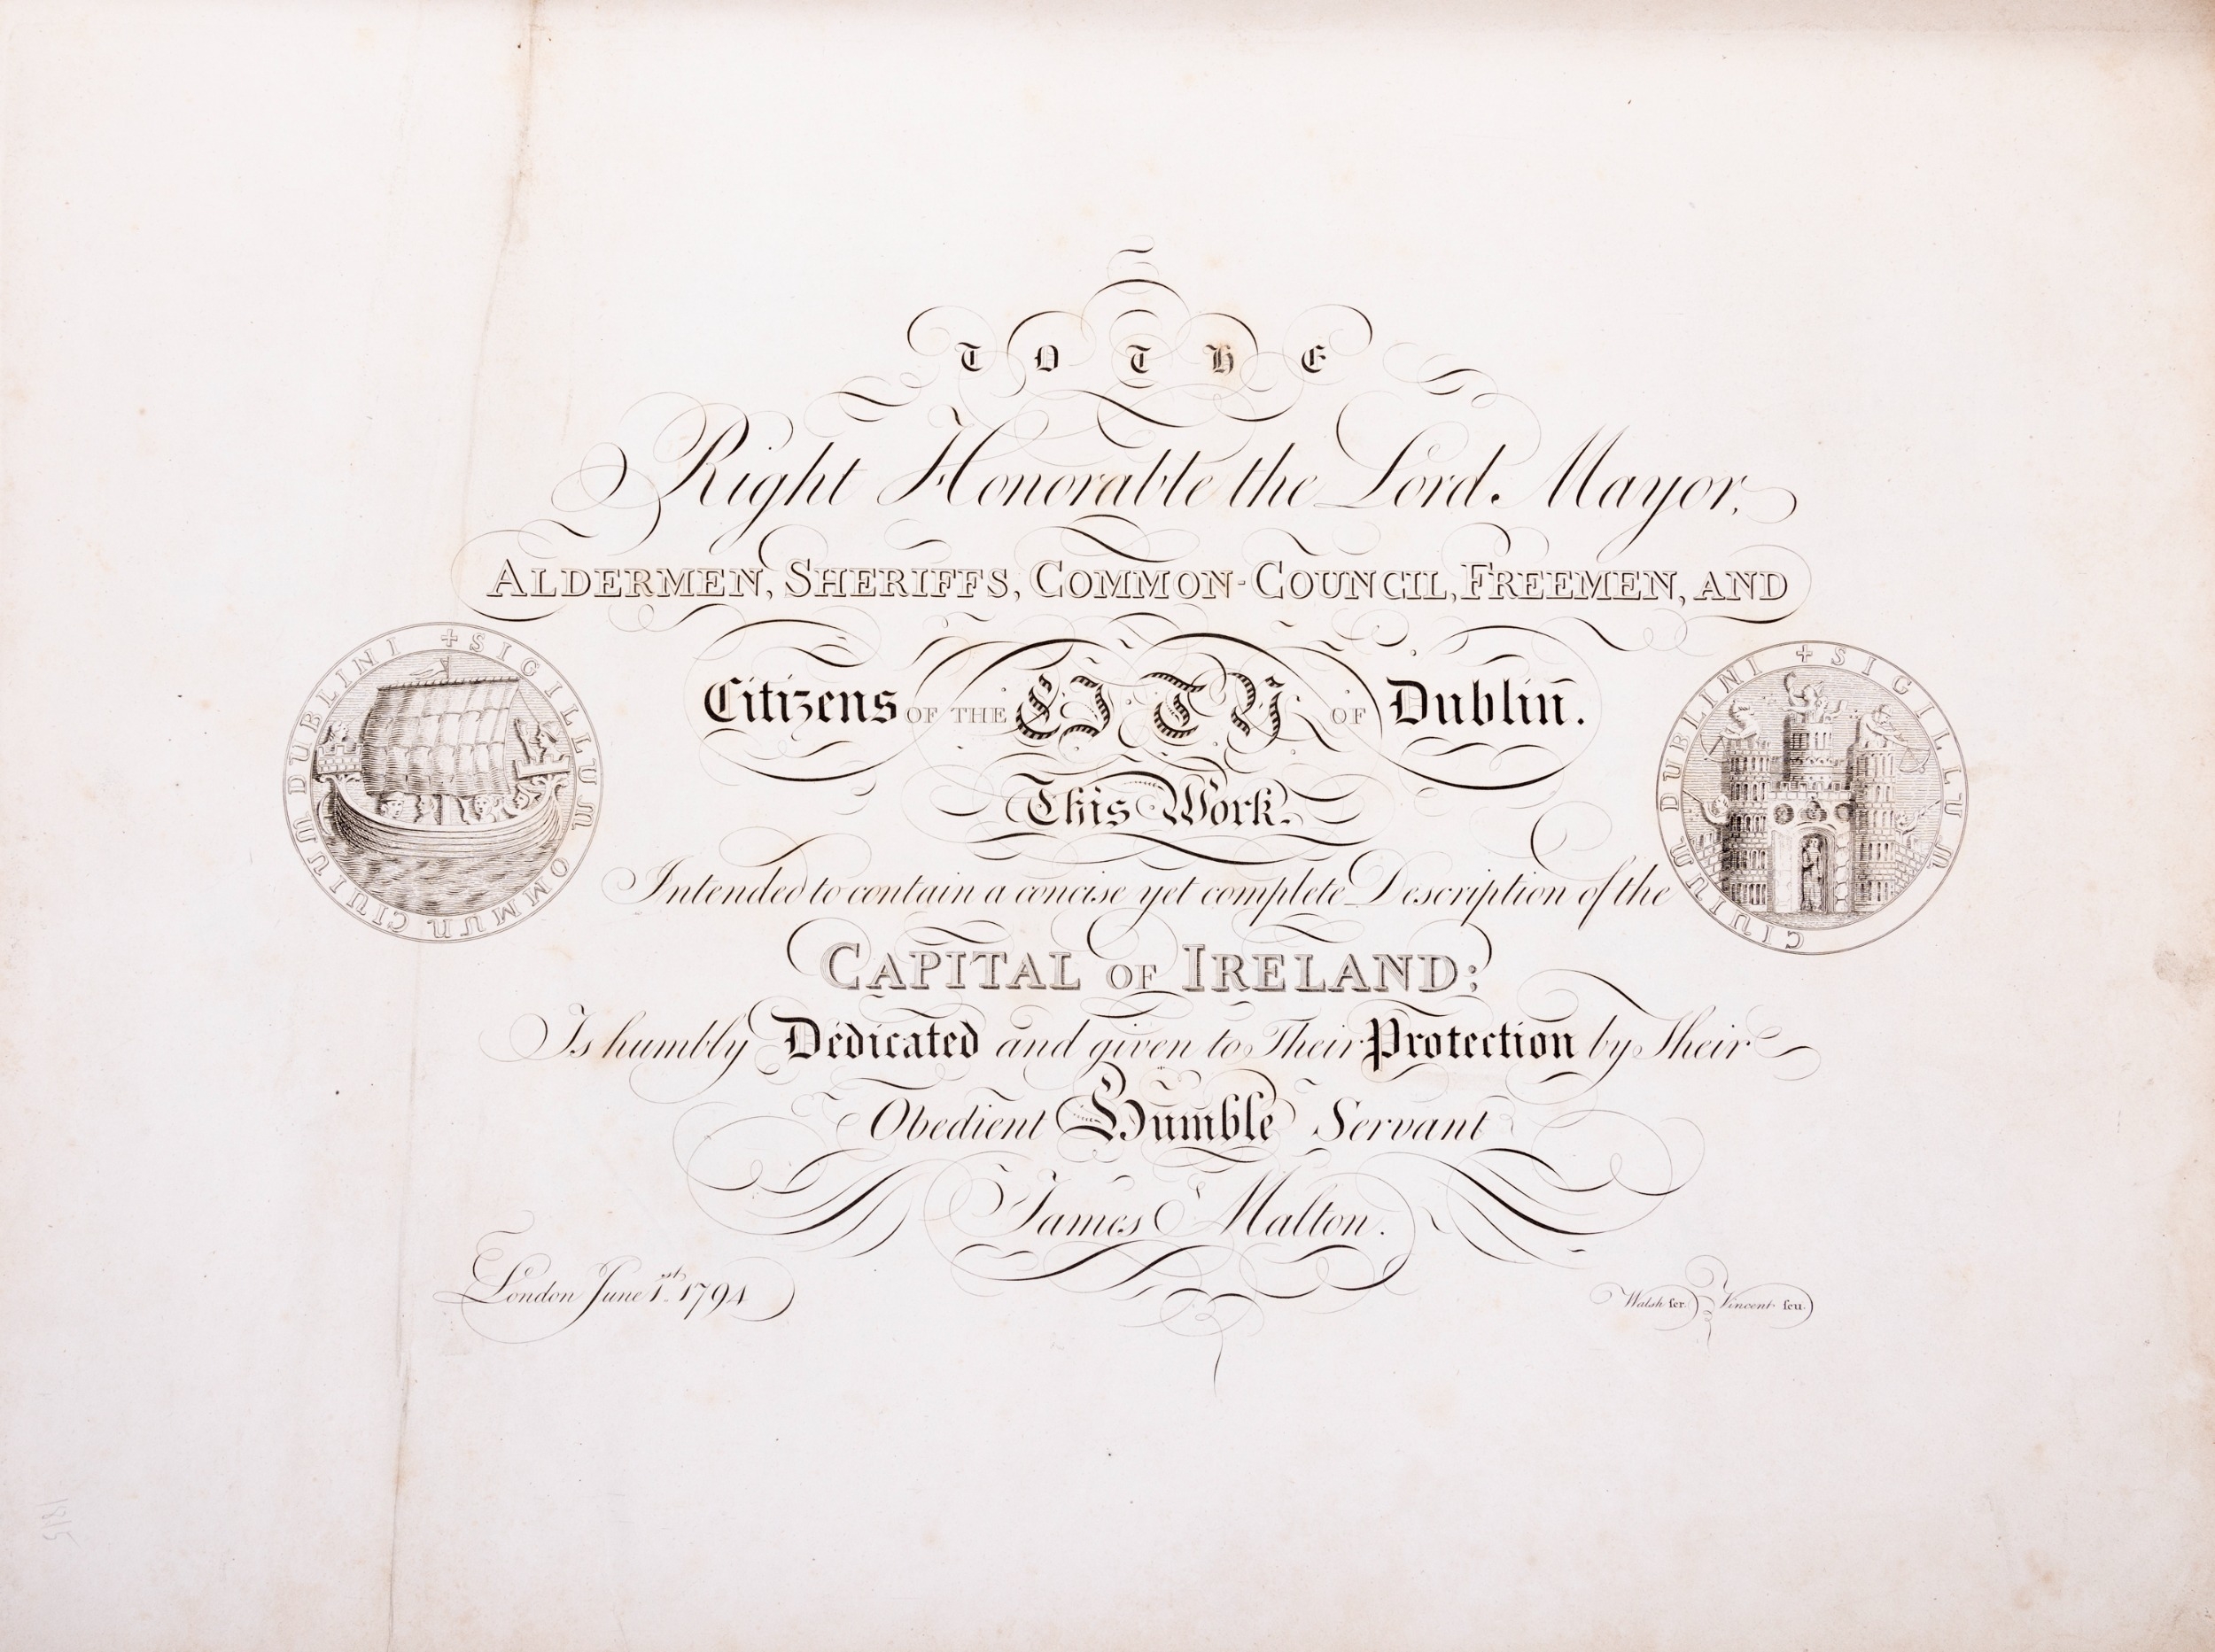 TO THE
Right Honorable the Lord Mayor,
ALDERMEN, SHERIFFS, COMMON-COUNCIL, FREEMEN, AND
Citizens OF THE CITY OF Dublin.
This Work.
Intended to contain a concise yet complete Description of the
CAPITAL OF IRELAND:
Is humbly Dedicated and given to Their Protection by Their
Obedient Humble Servant
James Malton.
London June 1st 1794
Walsh scr. Vincent scu.
+ SIGILLUM COMMUN CIVIUM DUBLINI
+ SIGILLUM CIVIUM DUBLINI
1815